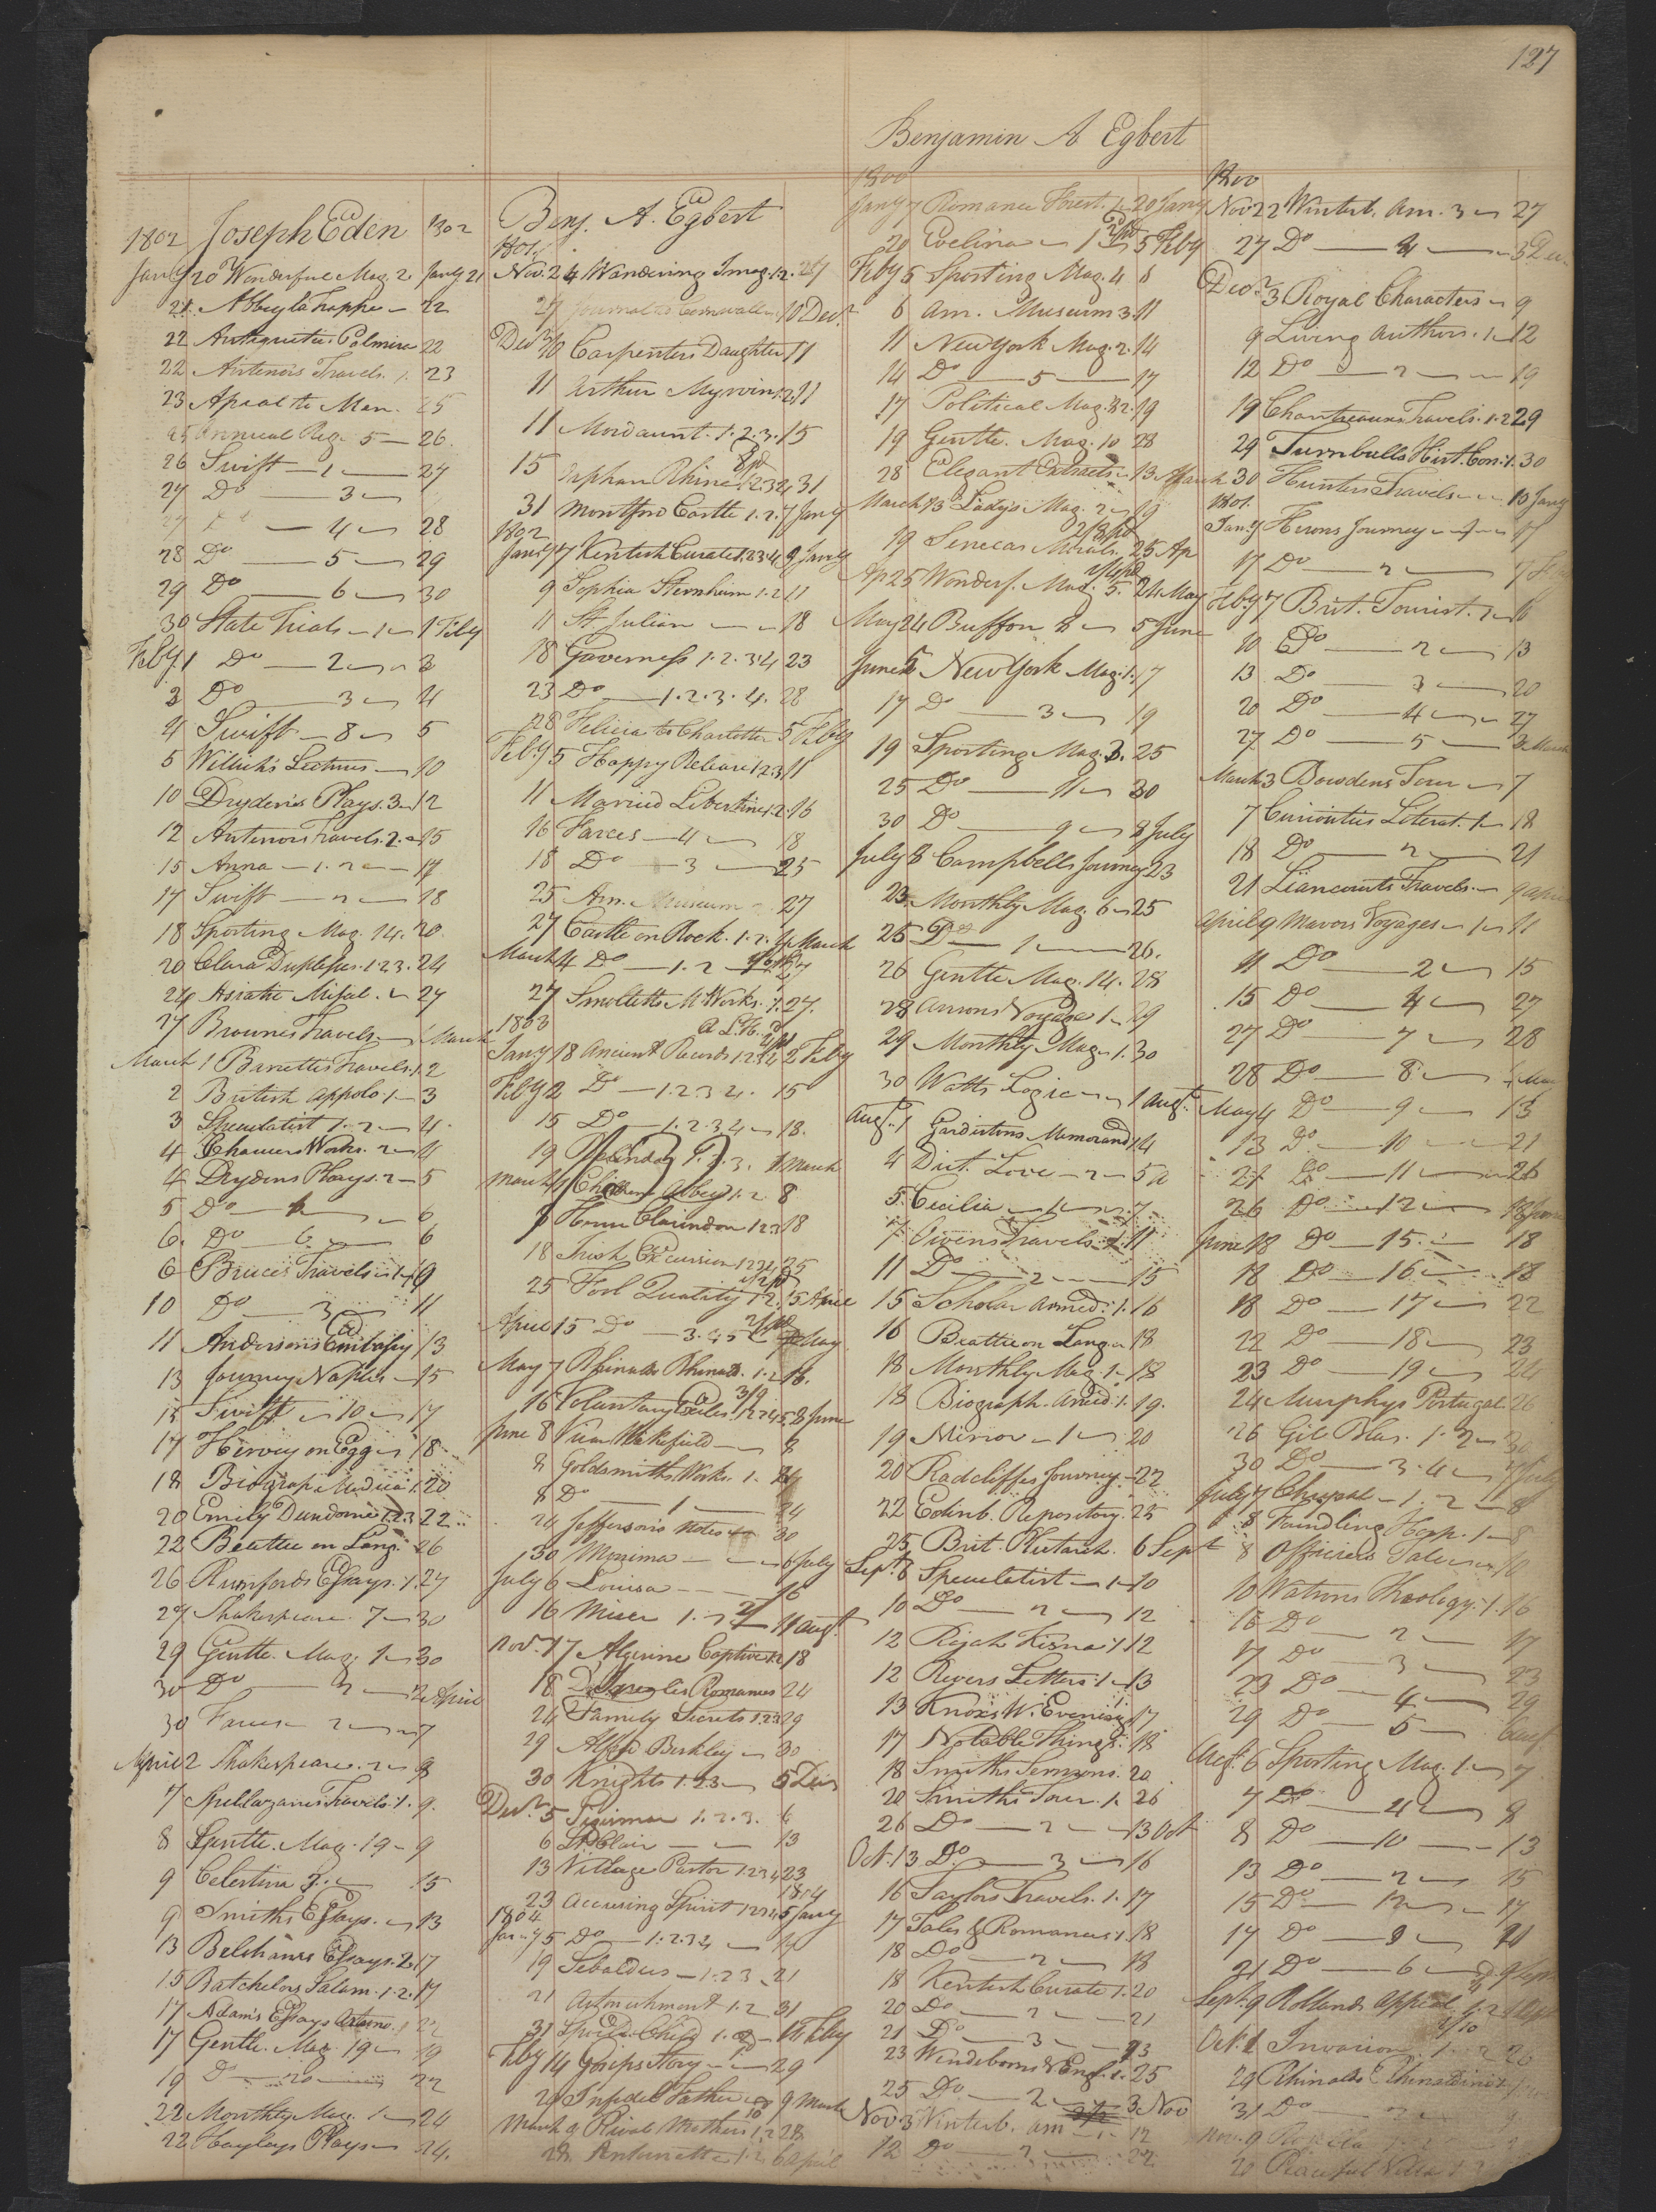 127
Benjamin A Egbert
Joseph Eden
1802 1802
Jany 20 Wonderful Mag. 2. Jany 21
21 Abbey la Trappe — 22
22 Antiquities Palmira 22
22 Antenors Travels. 1. 23
23 Apeal to Men. 25
25 Annual Reg. 5 — 26.
26 Swift — 1 — 27
27 Do — 3 —
27 Do — 4 — 28
28 Do — 5 — 29
29 Do — 6 — 30
30 State Trials — 1 — 1 Feby
Feby 1 Do — 2 — 3
3 Do — 3 — 4
4 Swift — 8 — 5
5 Willich's Lectures — 10
10 Dryden's Plays. 3 — 12
12 Antenors Travels. 2. — 15
15 Anna — 1. 2 — 17
17 Swift — 2 — 18
18 Sporting Mag. 14. 20.
20 Clara Duplessis. 1.2.3. 24
24 Asiatic Misul. — 27
27 Brownes Travels — 1 March
March 1 Barretties Travels. 1. 2
2 British Appolo. 1 — 3
3 Speculatist 1. 2 — 4.
4 Chaucers Works. 2 — 4
4 Drydens Plays. 2 — 5
5 Do — — 6
6. Do — 6. — 6
6 Bruces Travels — 1 — 9
10 Do — 3 — 11
11 Andersons Embassy 13
13 Journey Naples — 15
15 Swift — 10 — 17
17 Hervey on Egg — 18
18 Biograp. Medica 1. 20
20 Emily Dundorne 1.2.3 22
22 Beattie on Lang. 26
26 Rumfords Essays. 1. 27
27 Shakespeare. 7 — 30
29 Gentle. Mag. 1 — 30
30 Do — — 2 April
30 Farces — 2 — 7
April 2 Shakespeare. 2 — 8
7 Spillazanies Travels. 1. 9.
8 Gentle. Mag. 19 — 9
9 Celestina 3. — 15
9 Smiths Essays. — 13
13 Belshams Essays. 2. 17
15 Batchelors Salam. 1. 2. 17
17 Adam's Essays 22
17 Gentle. Mag. 19 — 19
19 Do — 20 — 22
22 Monthly Mag. 1 — 24
22 Hayleys Plays — 24.
Benj. A. Egbert
1801
Nov. 24 Wandering Imag. 1.2. 27
27 Journal to Cornwall — 10 Decr
Decr 10 Carpenters Daughter 11
11 Arthur Mervin 1.2. 11
11 Mordaunt. 1. 2. 3. 15
15 Orphan Rhine 1.2.3.4 31
31 Montford Castle 1. 2. 7 Jany
1802
Jany 7 Kentish Curate 1.2.3.4 9 Jany
9 Sophia Sternheim 1. 2 11
11 St. Julian — — 18
18 Governess 1. 2. 3. 4 23
23 Do — 1. 2. 3. 4. 28
28 Felicia to Charlotte 5 Feby
Feby 5 Happy Release 1.2.3 11
11 Married Libertine 1. 2. 16
16 Farces — 4 — 18
18 Do — 3 — 25
25 Am. Museum 27
27 Castle on Rock. 1. 2. 4 March
March 4 Do — 1. 2 — 27
27 Smolletts M. Works. 1. 27.
1803
Jany 18 Ancient Records 1.2.3.4 2 Feby
Feby 2 Do — 1.2.3 4. 15
15 Do — 1. 2. 3 4 — 18.
19 Melinda 1. 2. 3. 1 March
March 1 Children Abbey 1. 2 8
8 Henry Clarindon 1 2.3 18
18 Irish Excursion 1234 25
25 Fool Quality 1. 2. 5 April
April 15 Do — 3. 4 5 May
May 7 Rhinaldo Rhinald. 1. 2 16.
16 Voluntary Exiles. 1.2.3.4.5. 8 June
June 8 Vicar Wakefield — 8
8 Goldsmiths Works. 1. 24
8 Do — 1 — 24
24 Jefferson's Notes — 30
30 Monima — — 6 July
July 6 Louisa — — 16
16 Miser 1. 2 11 Augt
Nov. 17 Algerine Captive 1.2 18
18 Romances 24
24 Family Secrets 1.2.3 29
29 Alfred Berkley — 30
30 Knights 1. 2. 3 — 5 Decr
Decr 5 1. 2. 3. 6
6 St. Clair — — 13
13 Village Pastor 1.2.3.4 23
1804
23 Accusing Spirit 1234 5 Jany
1804
Jany 5 Do — 1. 2. 3 4 — 19
19 Sebaldus — 1. 2 3. 21
21 Astonishment 1. 2 31
31 Spoild Child 1. 2 — 14 Feby
Feby 14 Gosips Story — 29
29 Infidel Father — 9 March
March 9 Rival Mothers 1.2 28
28 Antoinette 1. 2. 6 April
1800
Jany 7 Romance Forest. 1 — 20 Jany
20 Evelina — 1 5 Feby
Feby 5 Sporting Mag. 4 6
6 Am. Museum 3. 11
11 New York Mag. 2. 14
14 Do — 5 — 17
17 Political Mag. 2. 19
19 Gentle. Mag. 10 28
28 Elegant Extracts — 13 March
March 13 Ladys Mag. 2 — 19
19 Senecas Morals. 25 Ap
Ap 25 Wonderf. Mag. 5. 24 May
May 24 Buffon 2 — 5 June
June 5 New York Mag. 1. 17
17 Do — 3 — 19
19 Sporting Mag. 3. 25
25 Do — 11 — 30
30 Do — 9 — 8 July
July 8 Campbells Journey 23
23. Monthly Mag. 6 — 25
25 Do — 1 — 26.
26 Gentle Mag. 14. 28
28 Ansons Voyage 1 — 29
29 Monthly Mag. 1. 30
30 Watts Logic — 1 Augt
Augt 1 Gardestons Memorand 4
4 Dict. Love — 2 — 5
5. Cecilia — 1 — 7
7 Owens Travels. 1. 11
11 Do — 2 — 15
15 Scholar Armed. 1. 16
16 Beattie on Lang. — 18
18 Monthly Mag. 1 — 18
18 Biograph. 1. 19.
19 Mirror — 1 — 20
20 Radcliffes Journey. — 22
22 Edinb. Repository. 25
25. Brit. Plutarch. 6 Sept
Sept 6 Speculatist — 1 — 10
10 Do — 2 — 12
12 Rajah Kisna 1. 12
12 Rogers Letters 1 — 13
13 Knoxs W. Evening 1. 17
17 Notable Things. 18
18 Smiths Sermons. 20
20 Smiths Tour. 1. 26
26 Do — 2 — 13 Oct
Oct. 13 Do — 3 — 16
16 Taylors Travels. 1. 17
17 Tales & Romances 1. 18
18 Do — 2 — 18
18 Kentish Curate 1. 20
20 Do — 2 — 21
21 Do — 3 — 23
23 Wendeborns Engl. 1. 25
25 Do — 2 — 3 Nov
Nov 3 Winterb. Am — 1. 12
12 Do — 2 — 22
1800
Nov 22 Winterb. Am. 3 — 27
27 Do — 4 — 3 Dec.
Decr 3 Royal Characters — 9
9 Living Authors. 1 — 12
12 Do — 2 — 19
19 Chantreaux Travels. 1. 2 29
29 Turnbulls Hist. Con. 1. 30
30 Hunters Travels — 10 Jany
1801.
Jany Herons Journey — 1 — 17
17 Do — 2 —
Feby 7 Brit. Tourist. 1 — 10
10 Do — 2 — 13
13 Do — 3 — 20
20 Do — 4 — 27
27 Do — 5 — 3 March
March 3 Bowdens Tour — 7
7 Curiosities Literat. 1 — 18
18 Do — 2 — 21
21 Liancourts Travels. — 9 April
April 9 Mavors Voyages — 1 — 11
11 Do — 2 — 15
15 Do — 4 — 27
27 Do — 7 — 28
28 Do — 8 — May
May 4 Do — 9 — 13
13 Do — 10 — 21
21 Do — 11 — 26
26 Do — 12 — 18 June
June 18 Do — 15. — 18
18 Do — 16 — 18
18 Do — 17 — 22
22 Do — 18 — 23
23 Do — 19 — 24
24 Murphys Portugal 26
26 Gil Blas. 1. 2 — 30
30 Do — 3. 4 — 7 July
July 7 Chrysal — 1. 2 — 8
8 Foundling Hosp. 1 — 8
8 Officiers Tales — 10
10 Watsons Theology. 1. 16
16 Do — 2 — 17
17 Do — 3 — 23
23 Do — 4 — 29
29 Do — 5 — 6 Augt
Augt 6 Sporting Mag. 1. — 7
7 Do — 4 — 8
8 Do — 10 — 13
13 Do — 2 — 15
15 Do — 12 — 17
17 Do — 9 — 21
21 Do — 6 — 9 Sept
Sept. 9 Rollands Appeal 1. 2
Oct. 1 Invasion 1. 2 26
29 Rhinaldo
31 Do
Nov. 9
20 Peaceful Villa